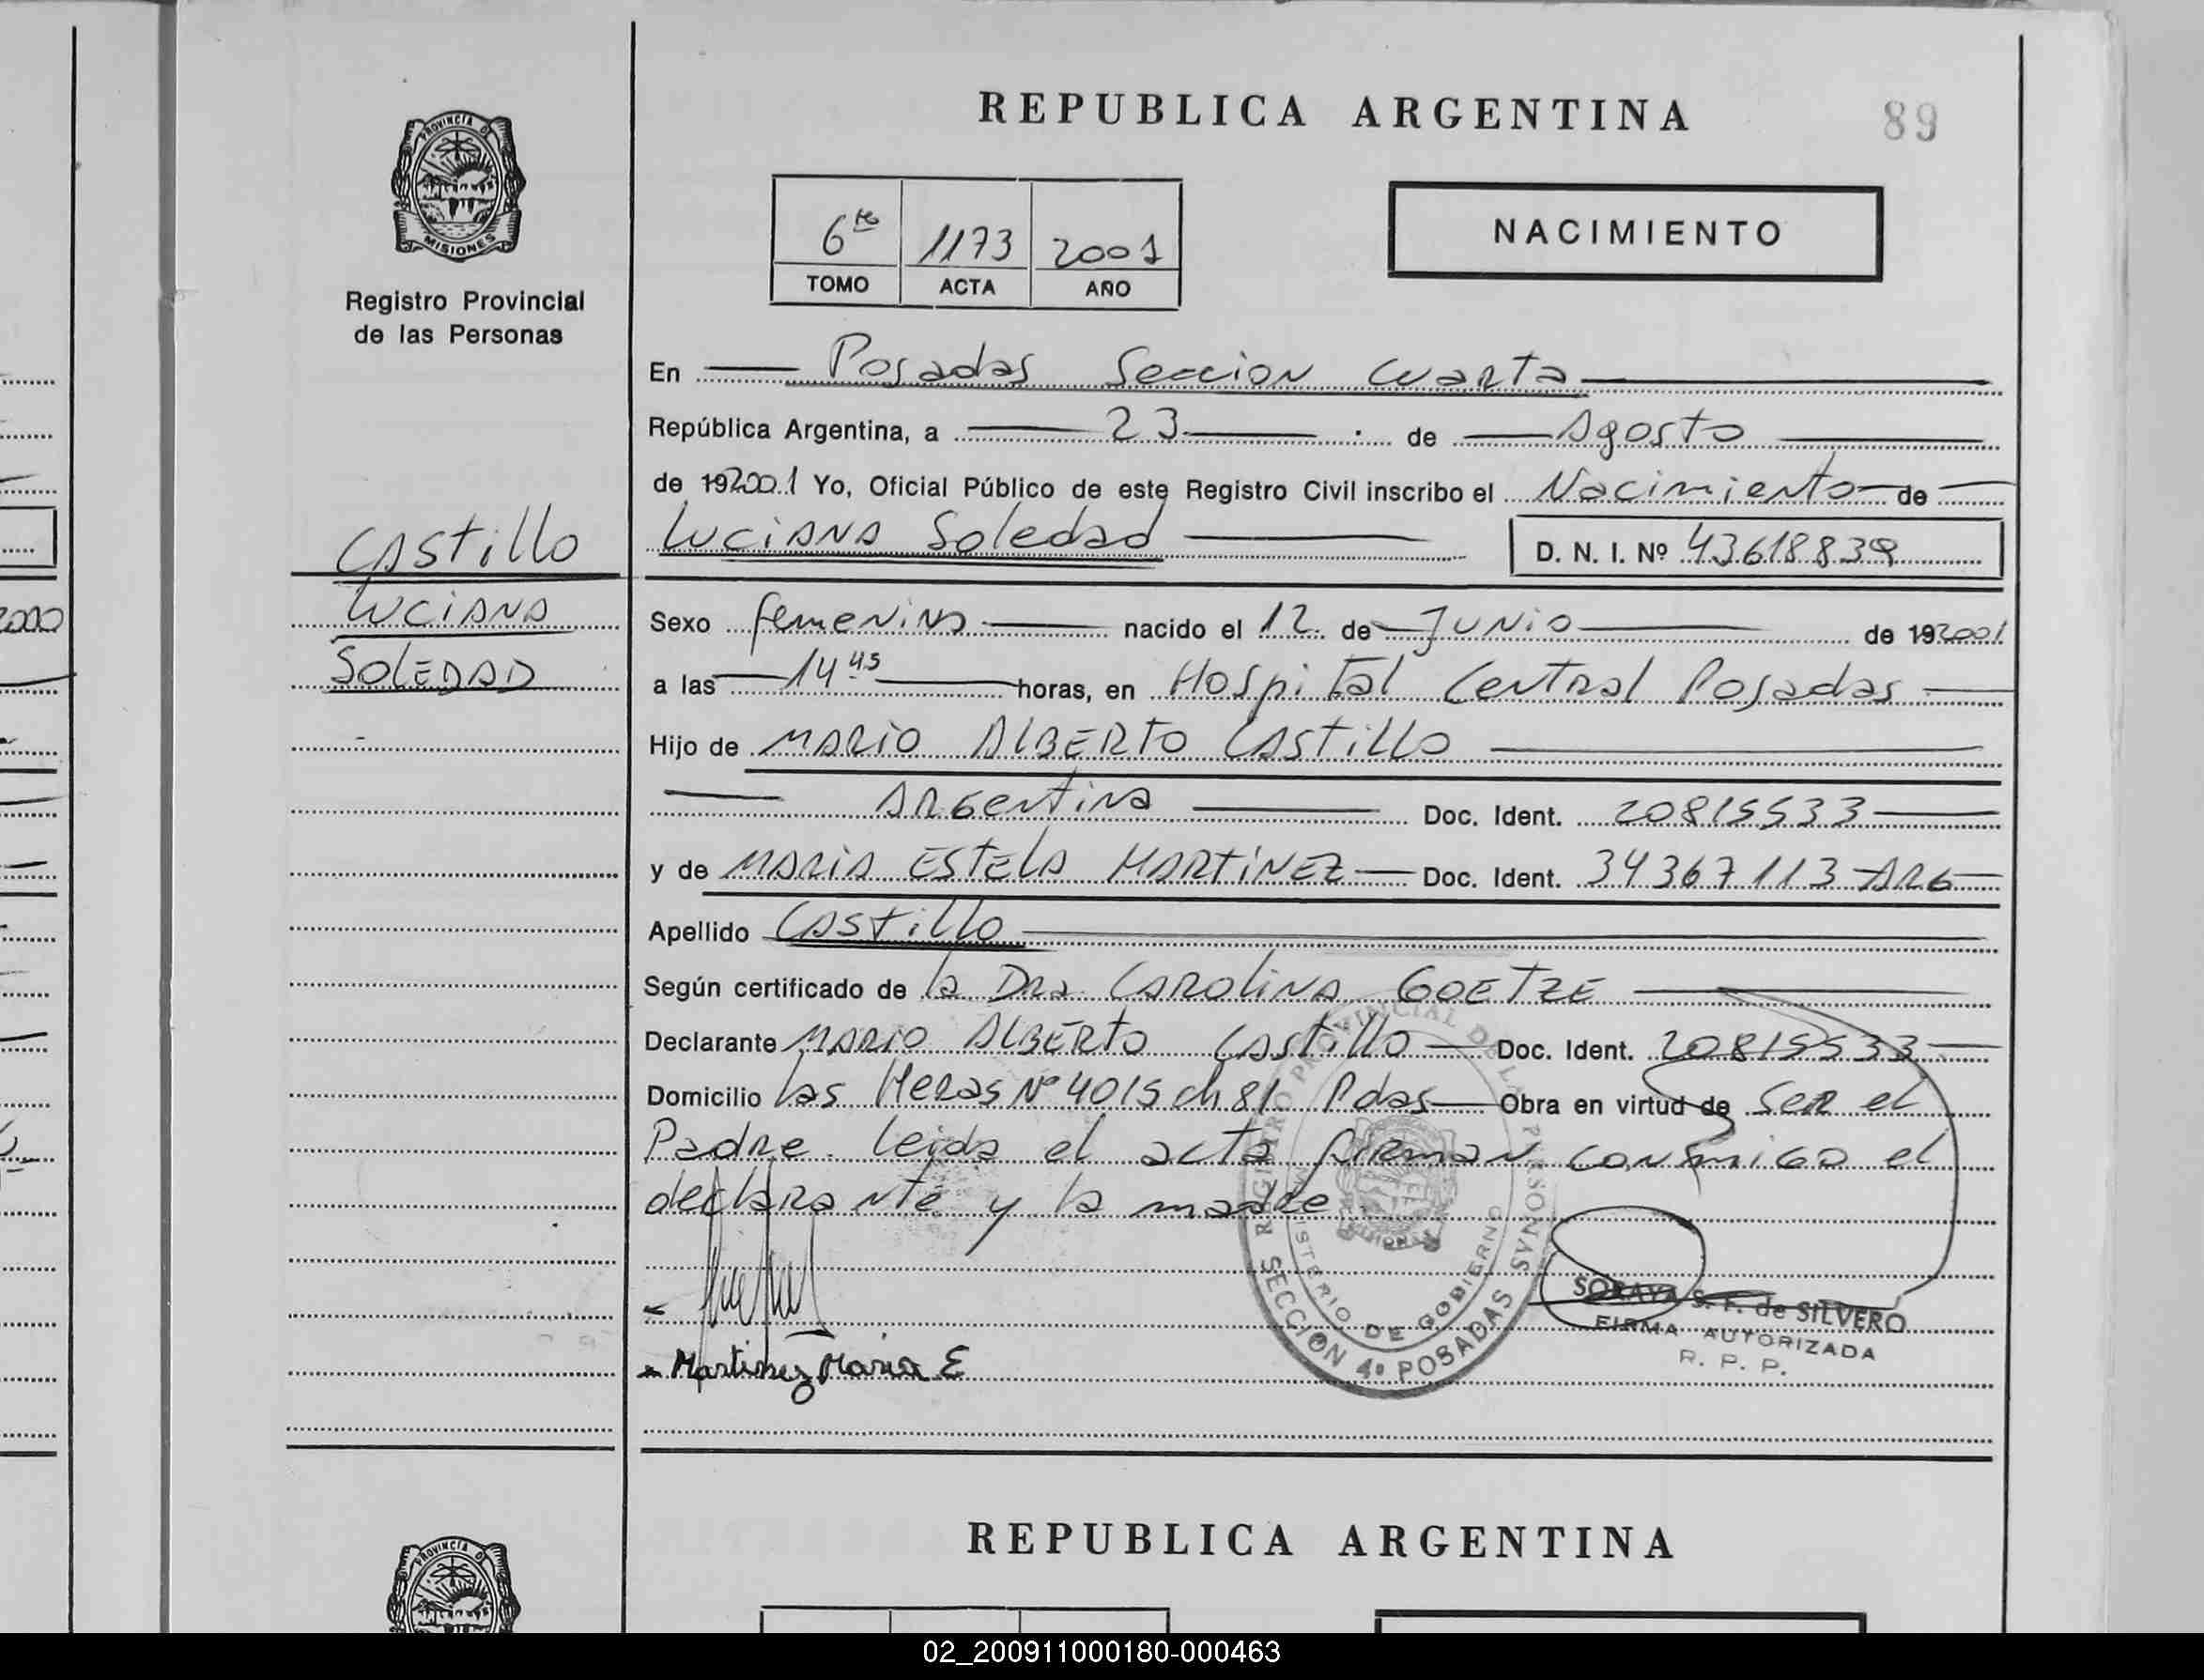 REPUBLICA ARGENTINA
89
PROVINCIA DE
MISIONES
Registro Provincial
de las Personas
6to 1173 2001
TOMO ACTA AÑO
NACIMIENTO
En Posadas Seccion Cuarta
República Argentina, a 23 de Agosto
de 192001 Yo, Oficial Público de este Registro Civil inscribo el Nacimiento de
Luciana Soledad D. N. I. Nº 43618839
Castillo
Luciana
Soledad
2000
Sexo femenino nacido el 12 de Junio de 192001
a las 14 45 horas, en Hospital Central Posadas
Hijo de Mario Alberto Castillo
Argentina Doc. Ident. 20815533
y de Maria Estela Martinez Doc. Ident. 34367113 Arg
Apellido Castillo
Según certificado de la Dra Carolina Goetze
Declarante Mario Alberto Castillo Doc. Ident. 20815533
Domicilio las Heras Nº 4015 ch 81 Pdas Obra en virtud de ser el
Padre. leida el acta firman conmigo el
declarante y la madre
REGISTRO PROVINCIAL DE LAS PERSONAS
MINISTERIO DE GOBIERNO
MISIONES
SECCION 4ª POSADAS
SORAYA S. F. de SILVERO
FIRMA AUTORIZADA
R. P. P.
Martinez Maria E
REPUBLICA ARGENTINA
PROVINCIA DE
02_200911000180-000463